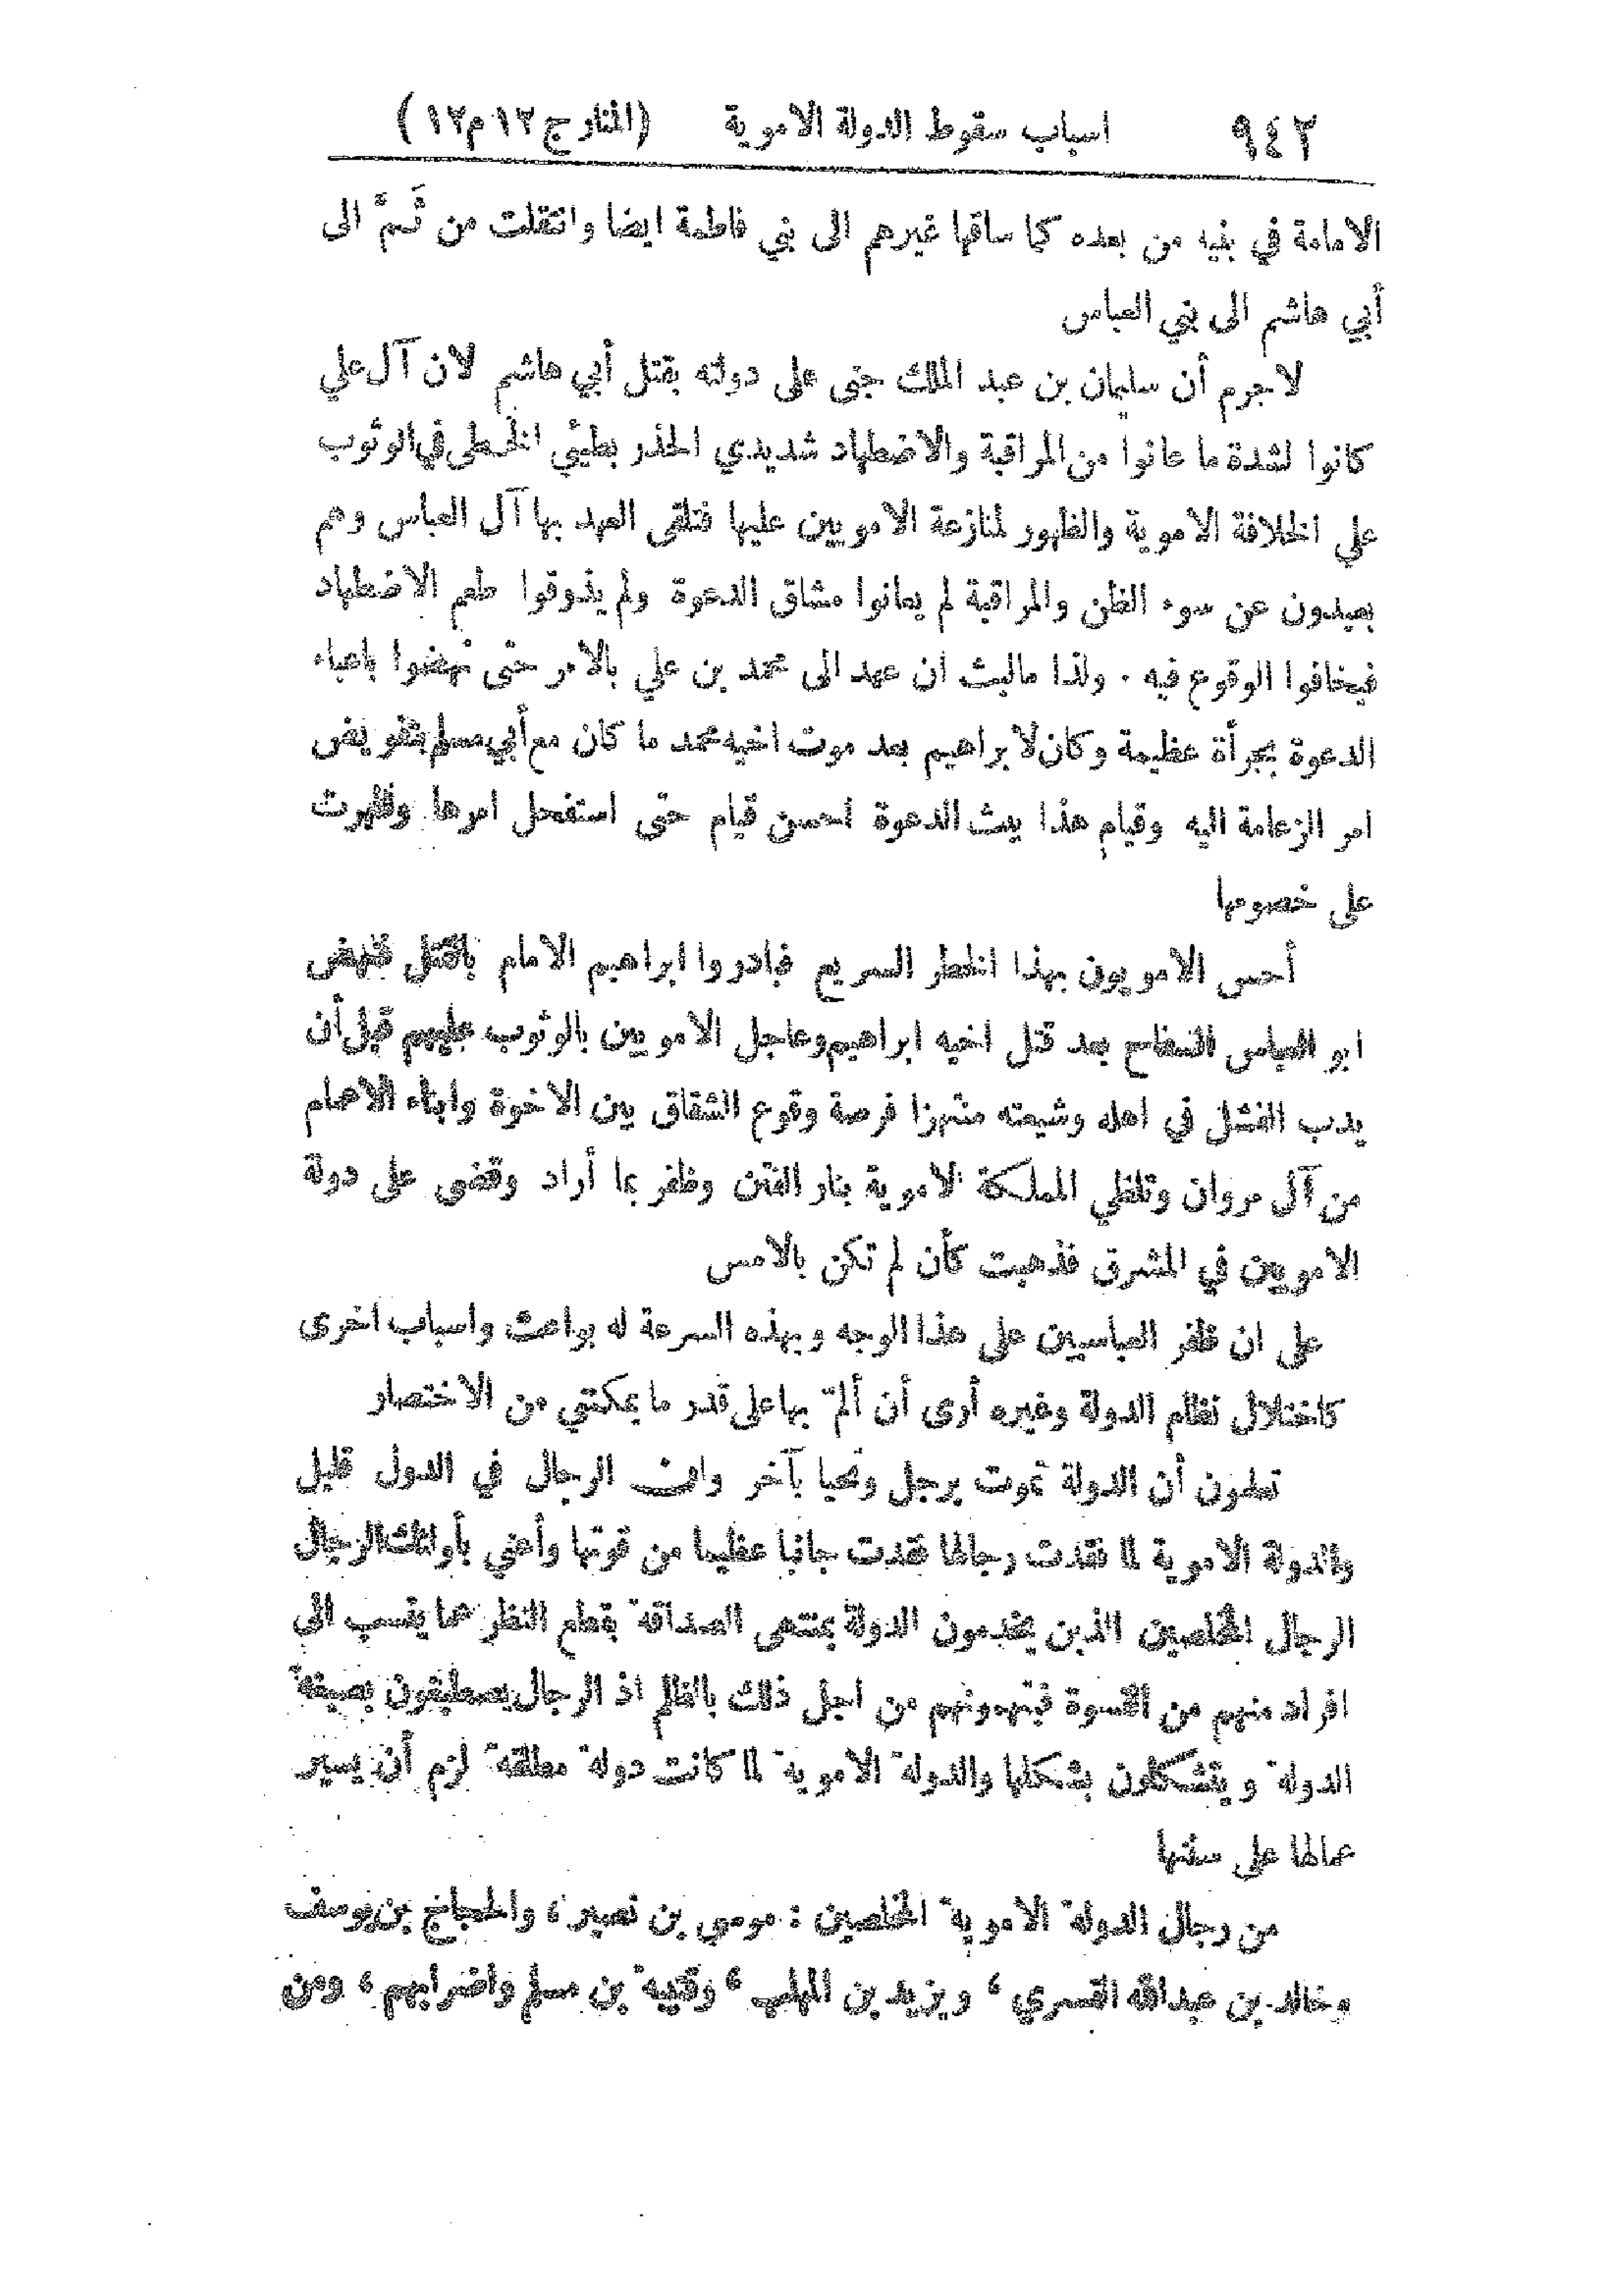 ٩٤٢ اسباب سقوط الدولة الاموية (المنار ج ١٢ م ١٢)
الامامة في بنيه من بعده كما ساقها غيرهم الى بني فاطمة ايضا وانتقلت من ثَمَّ الى
أبي هاشم الى بني العباس
لاجرم أن سليمان بن عبد الملك جنى على دولته بقتل أبي هاشم لان آل علي
كانوا لشدة ما عانوا من المراقبة والاضطهاد شديدي الحذر بطيئي الخطى في الوثوب
على الخلافة الاموية والظهور لمنازعة الامويين عليها فتلقى العهد بها آل العباس وهم
بعيدون عن سوء الظن والمراقبة لم يعانوا مشاق الدعوة ولم يذوقوا طعم الاضطهاد
فيخافوا الوقوع فيه . ولذا مالبث ان عهد الى محمد بن علي بالامر حتى نهضوا باعباء
الدعوة بجرأة عظيمة وكان لابراهيم بعد موت اخيه محمد ما كان مع أبي مسلم بتفويض
امر الزعامة اليه وقيام هذا ببث الدعوة احسن قيام حتى استفحل امرها وظهرت
على خصومها
أحس الامويون بهذا الخطر السريع فبادروا ابراهيم الامام بالقتل فنهض
ابو العباس السفاح بعد قتل اخيه ابراهيم وعاجل الامويين بالوثوب عليهم قبل أن
يدب الفشل في اهله وشيعته منتهزا فرصة وقوع الشقاق بين الاخوة وابناء الاعمام
من آل مروان وتلظي المملكة الاموية بنار الفتن وظفر بما أراد وقضى على دولة
الامويين في المشرق فذهبت كأن لم تكن بالامس
على ان ظفر العباسيين على هذا الوجه وبهذه السرعة له بواعث واسباب اخرى
كاختلال نظام الدولة وغيره أرى أن ألمّ بها على قدر ما يمكنني من الاختصار
تعلمون أن الدولة تموت برجل وتحيا بآخر وان الرجال في الدول قليل
والدولة الاموية لما فقدت رجالها فقدت جانبا عظيما من قوتها وأعني بأولئك الرجال
الرجال المخلصين الذين يخدمون الدولة بمنتهى الصداقة بقطع النظر عما ينسب الى
افراد منهم من القسوة فيتهمونهم من اجل ذلك بالظلم اذ الرجال يصطبغون بصبغة
الدولة ويتشكلون بشكلها والدولة الاموية لما كانت دولة مطلقة لزم أن يسير
عمالها على سنتها
من رجال الدولة الاموية المخلصين : موسى بن نصير ، والحجاج بن يوسف
وخالد بن عبدالله القسري ، ويزيد بن المهلب ، وقتيبة بن مسلم واضرابهم ، ومن